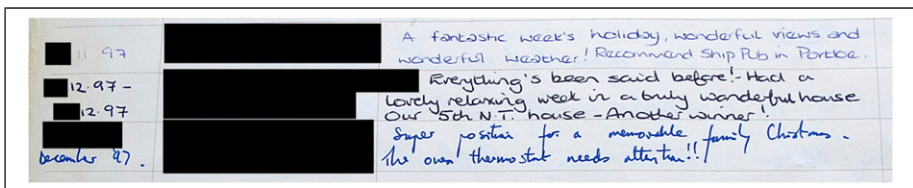 11 97 A fantastic week's holiday, wonderful views and
wonderful weather! Recommend Ship Pub in Portloe.
12.97 - Everything's been said before! - Had a
12.97 lovely relaxing week in a truly wonderful house
Our 5th N.T. house - Another winner!
Super position for a memorable family Christmas.
December 97. The oven thermostat needs attention!!